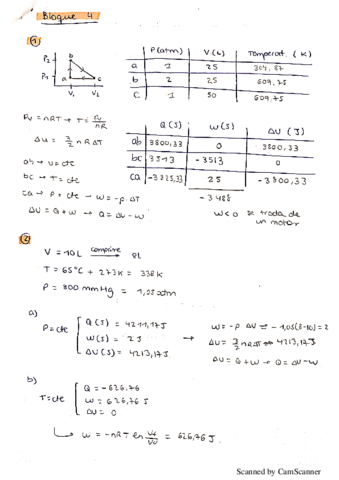 Bloque 4
①
P₂
P₁
a
b
c
V₁
V₂
P(atm) V(L) Temperat. (K)
a 1 25 304,87
b 2 25 609,75
c 1 50 609,75
PV = nRT → T = PV/nR
ΔU = 3/2 nRΔT
ab → V = cte
bc → T = cte
ca → P = cte → W = -P·ΔT
ΔU = Q + W → Q = ΔU - W
Q(J) W(J) ΔU (J)
ab 3800,33 0 3800,33
bc 3513 -3513 0
ca -3825,33 25 -3800,33
-3488
W<0 se trata de un motor
②
V = 10L comprime 8L
T = 65°C + 273K = 338K
P = 800 mmHg = 1,05atm
a)
P = cte
Q(J) = 4211,17J
W(J) = 2J
ΔU(J) = 4213,17J
W = -P ΔV = -1,05(8-10) = 2
ΔU = 3/2 nRΔT = 4213,17J
ΔU = Q + W → Q = ΔU - W
b)
T = cte
Q = -626,76
W = 626,76 J
ΔU = 0
W = -nRT ln Vf/V0 = 626,76 J
Scanned by CamScanner